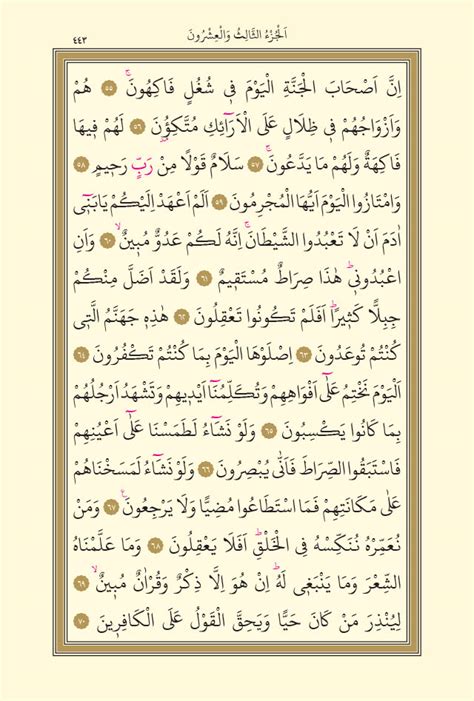 اَلْجُزْءُ الثَّالِثُ وَالْعِشْرُونَ ٤٤٣
اِنَّ اَصْحَابَ الْجَنَّةِ الْيَوْمَ ف۪ي شُغُلٍ فَاكِهُونَۚ ﴿٥٥﴾ هُمْ
وَاَزْوَاجُهُمْ ف۪ي ظِلَالٍ عَلَى الْاَرَٓائِكِ مُتَّكِؤُ۫نَۚ ﴿٥٦﴾ لَهُمْ ف۪يهَا
فَاكِهَةٌ وَلَهُمْ مَا يَدَّعُونَۚ ﴿٥٧﴾ سَلَامٌ قَوْلًا مِنْ رَبٍّ رَح۪يمٍ ﴿٥٨﴾
وَامْتَازُوا الْيَوْمَ اَيُّهَا الْمُجْرِمُونَ ﴿٥٩﴾ اَلَمْ اَعْهَدْ اِلَيْكُمْ يَابَن۪ٓي
اٰدَمَ اَنْ لَا تَعْبُدُوا الشَّيْطَانَۚ اِنَّهُ لَكُمْ عَدُوٌّ مُب۪ينٌۙ ﴿٦٠﴾ وَاَنِ
اعْبُدُون۪يۜ هٰذَا صِرَاطٌ مُسْتَق۪يمٌ ﴿٦١﴾ وَلَقَدْ اَضَلَّ مِنْكُمْ
جِبِلًّا كَث۪يرًاۜ اَفَلَمْ تَكُونُوا تَعْقِلُونَ ﴿٦٢﴾ هٰذِه۪ جَهَنَّمُ الَّت۪ي
كُنْتُمْ تُوعَدُونَ ﴿٦٣﴾ اِصْلَوْهَا الْيَوْمَ بِمَا كُنْتُمْ تَكْفُرُونَ ﴿٦٤﴾
اَلْيَوْمَ نَخْتِمُ عَلٰٓى اَفْوَاهِهِمْ وَتُكَلِّمُنَٓا اَيْد۪يهِمْ وَتَشْهَدُ اَرْجُلُهُمْ
بِمَا كَانُوا يَكْسِبُونَ ﴿٦٥﴾ وَلَوْ نَشَٓاءُ لَطَمَسْنَا عَلٰٓى اَعْيُنِهِمْ
فَاسْتَبَقُوا الصِّرَاطَ فَاَنّٰى يُبْصِرُونَ ﴿٦٦﴾ وَلَوْ نَشَٓاءُ لَمَسَخْنَاهُمْ
عَلٰى مَكَانَتِهِمْ فَمَا اسْتَطَاعُوا مُضِيًّا وَلَا يَرْجِعُونَ۟ ﴿٦٧﴾ وَمَنْ
نُعَمِّرْهُ نُنَكِّسْهُ فِي الْخَلْقِۜ اَفَلَا يَعْقِلُونَ ﴿٦٨﴾ وَمَا عَلَّمْنَاهُ
الشِّعْرَ وَمَا يَنْبَغ۪ي لَهُۜ اِنْ هُوَ اِلَّا ذِكْرٌ وَقُرْاٰنٌ مُب۪ينٌۙ ﴿٦٩﴾
لِيُنْذِرَ مَنْ كَانَ حَيًّا وَيَحِقَّ الْقَوْلُ عَلَى الْكَافِر۪ينَ ﴿٧٠﴾